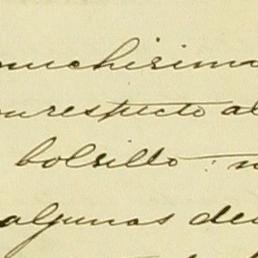 muchisima
con respecto al
bolsillo: n
algunas de